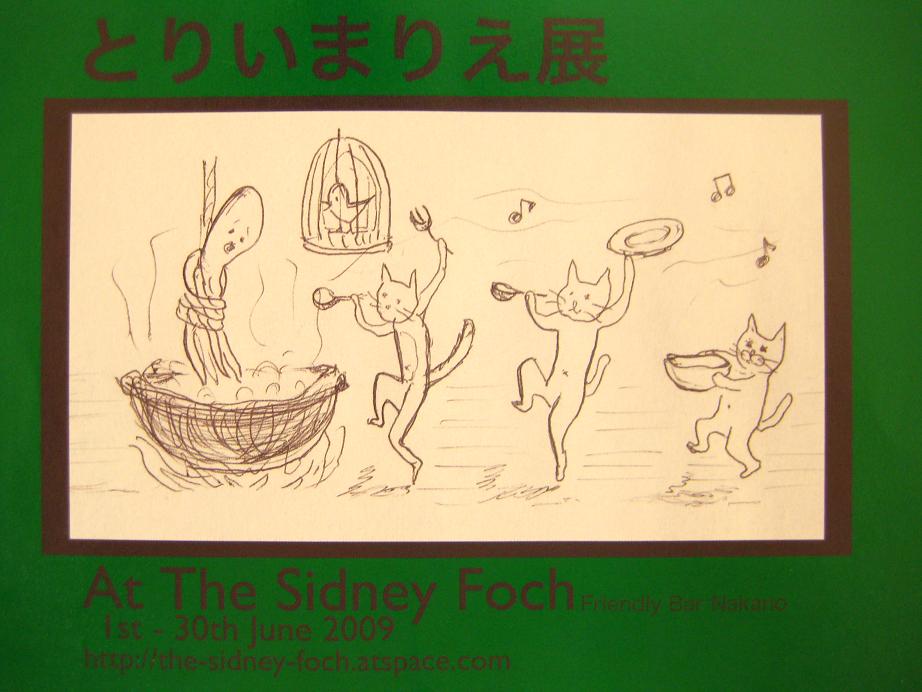 とりいまりえ展
At The Sidney Foch Friendly Bar Nakano
1st - 30th June 2009
http://the-sidney-foch.atspace.com